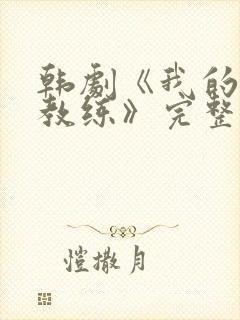 韩劇《我的
教练》完整
恺撒月